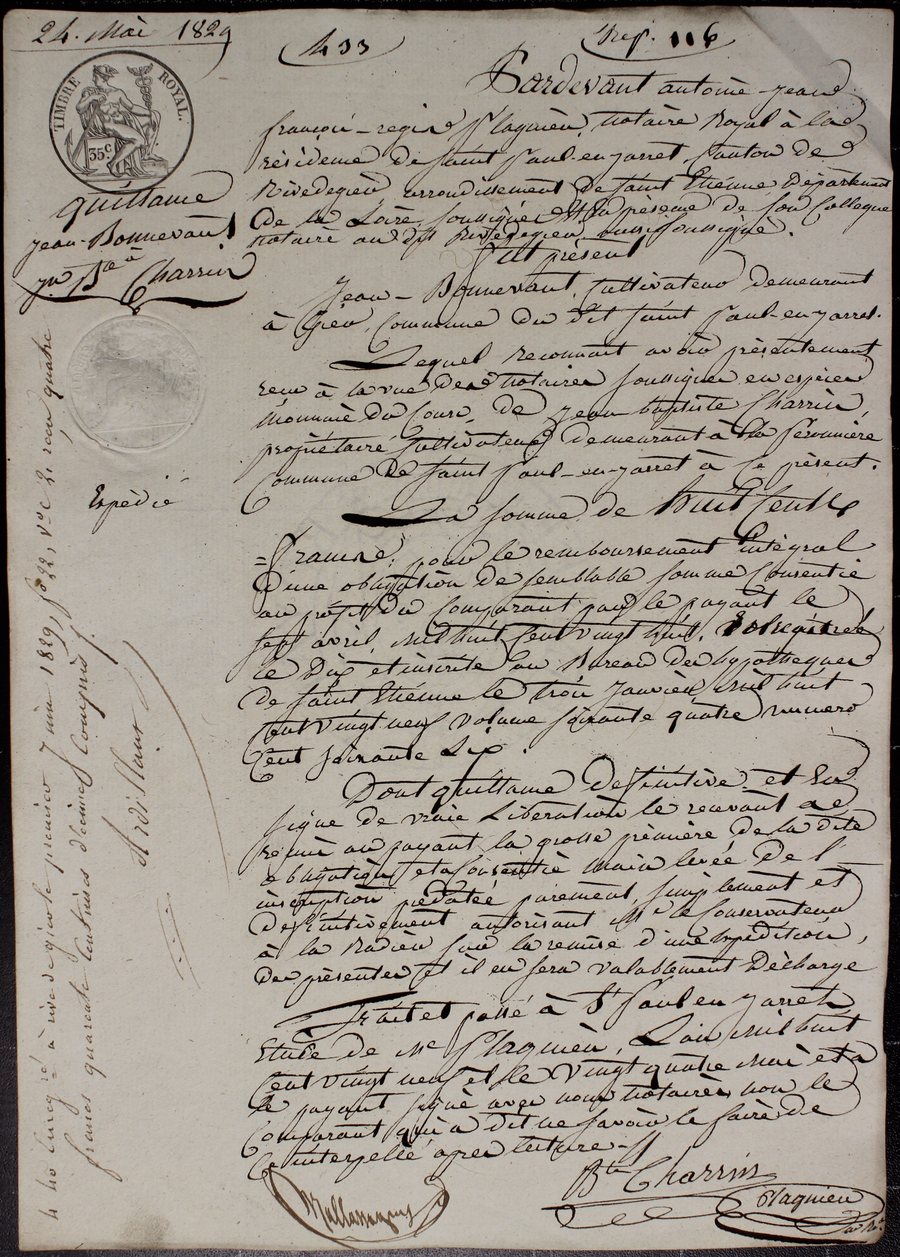 24. Mai 1829
433
Rep. 116
TIMBRE ROYAL.
35.c
Quittance
jean Bonnevant
Jn Bte Charrin
Expédié
Pardevant antoine jean
françois-regis Plagnieu, Notaire Royal à la
résidence de saint Paul-en-jarret, Canton de
Rivedegier arrondissement de saint Etienne Département
de la Loire soussigné et en présence de son Collegue
notaire au dit Rivedegier, aussi soussigné.
fut présent
Jean-Bonnevant, Cultivateur demeurant
à Commune du dit saint Paul-en-jarret.
Lequel reconnait avoir présentement
recu à la vue des notaires soussignés en espèces
monnaie du Cours, de jean baptiste Charrin,
propriétaire Cultivateur demeurant à la
Commune de saint Paul-en-jarret à ce présent.
La somme de huit Cents
=francs, pour le remboursement Intégral
d'une obligation de semblable somme Consentie
au profit du Comparant par le payant le
sept avril, mil huit Cent vingt huit, Enregistrée
le Dix et inscrite au Bureau des hypothèques
de saint Etienne le trois janvier mil huit
Cent vingt neuf volume soixante quatre numero
Cent soixante Six.
Dont quittance definitive et En
signe de vraie Libération le recevant a
remis au payant la grosse première de la dite
obligation et a Consenti main levée de l'
inscription prédatée purement, simplement et
definitivement autorisant Mr le Conservateur
à la Radier sur la remise d'une expédition,
des présentes et il en sera valablement Décharge
fait et passé à St Paul en jarret
Etude de Me Plagnieu, L'an mil huit
Cent vingt neuf et le vingt quatre mai et a
le payant signé avec nous notaires non le
Comparant qui a dit ne savoir le faire de
Ce interpellé apres lecture
Bte Charrin
Plagnieu
Enregistré à rive de gier le premier juin 1829, fo 22, vo C 2, recu quatre
francs quarante centimes décime compris
Ardillon